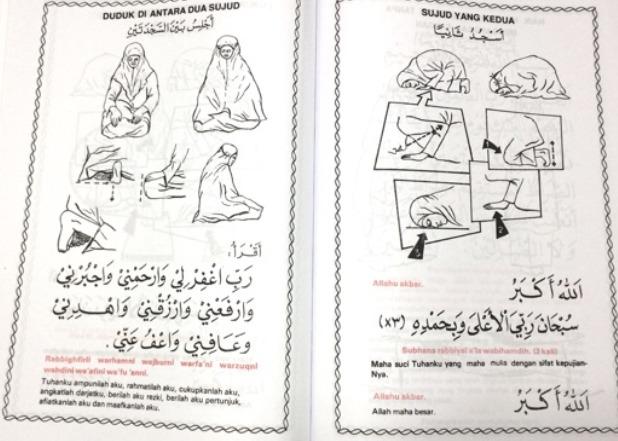 DUDUK DI ANTARA DUA SUJUD
أَجْلِسُ بَيْنَ السَّجْدَتَيْنِ
أَقْرَأُ:
رَبِّ اغْفِرْ لِيْ وَارْحَمْنِيْ وَاجْبُرْنِيْ
وَارْفَعْنِيْ وَارْزُقْنِيْ وَاهْدِنِيْ
وَعَافِنِيْ وَاعْفُ عَنِّيْ.
Rabbighfirli warhamni wajburni warfa'ni warzuqni
wahdini wa'afini wa'fu 'anni.
Tuhanku ampunilah aku, rahmatilah aku, cukupkanlah aku,
angkatlah darjatku, berilah aku rezki, berilah aku pertunjuk,
afiatkanlah aku dan maafkanlah aku.
SUJUD YANG KEDUA
أَسْجُدُ ثَانِيًا
1
2
Allahu akbar.
اَللّٰهُ أَكْبَرُ
سُبْحَانَ رَبِّيَ الْأَعْلَى وَبِحَمْدِهِ (×٣)
Subhana rabbiyal a'la wabihamdih. (3 kali)
Maha suci Tuhanku yang maha mulia dengan sifat kepujian-
Nya.
Allahu akbar.
اَللّٰهُ أَكْبَرُ
Allah maha besar.